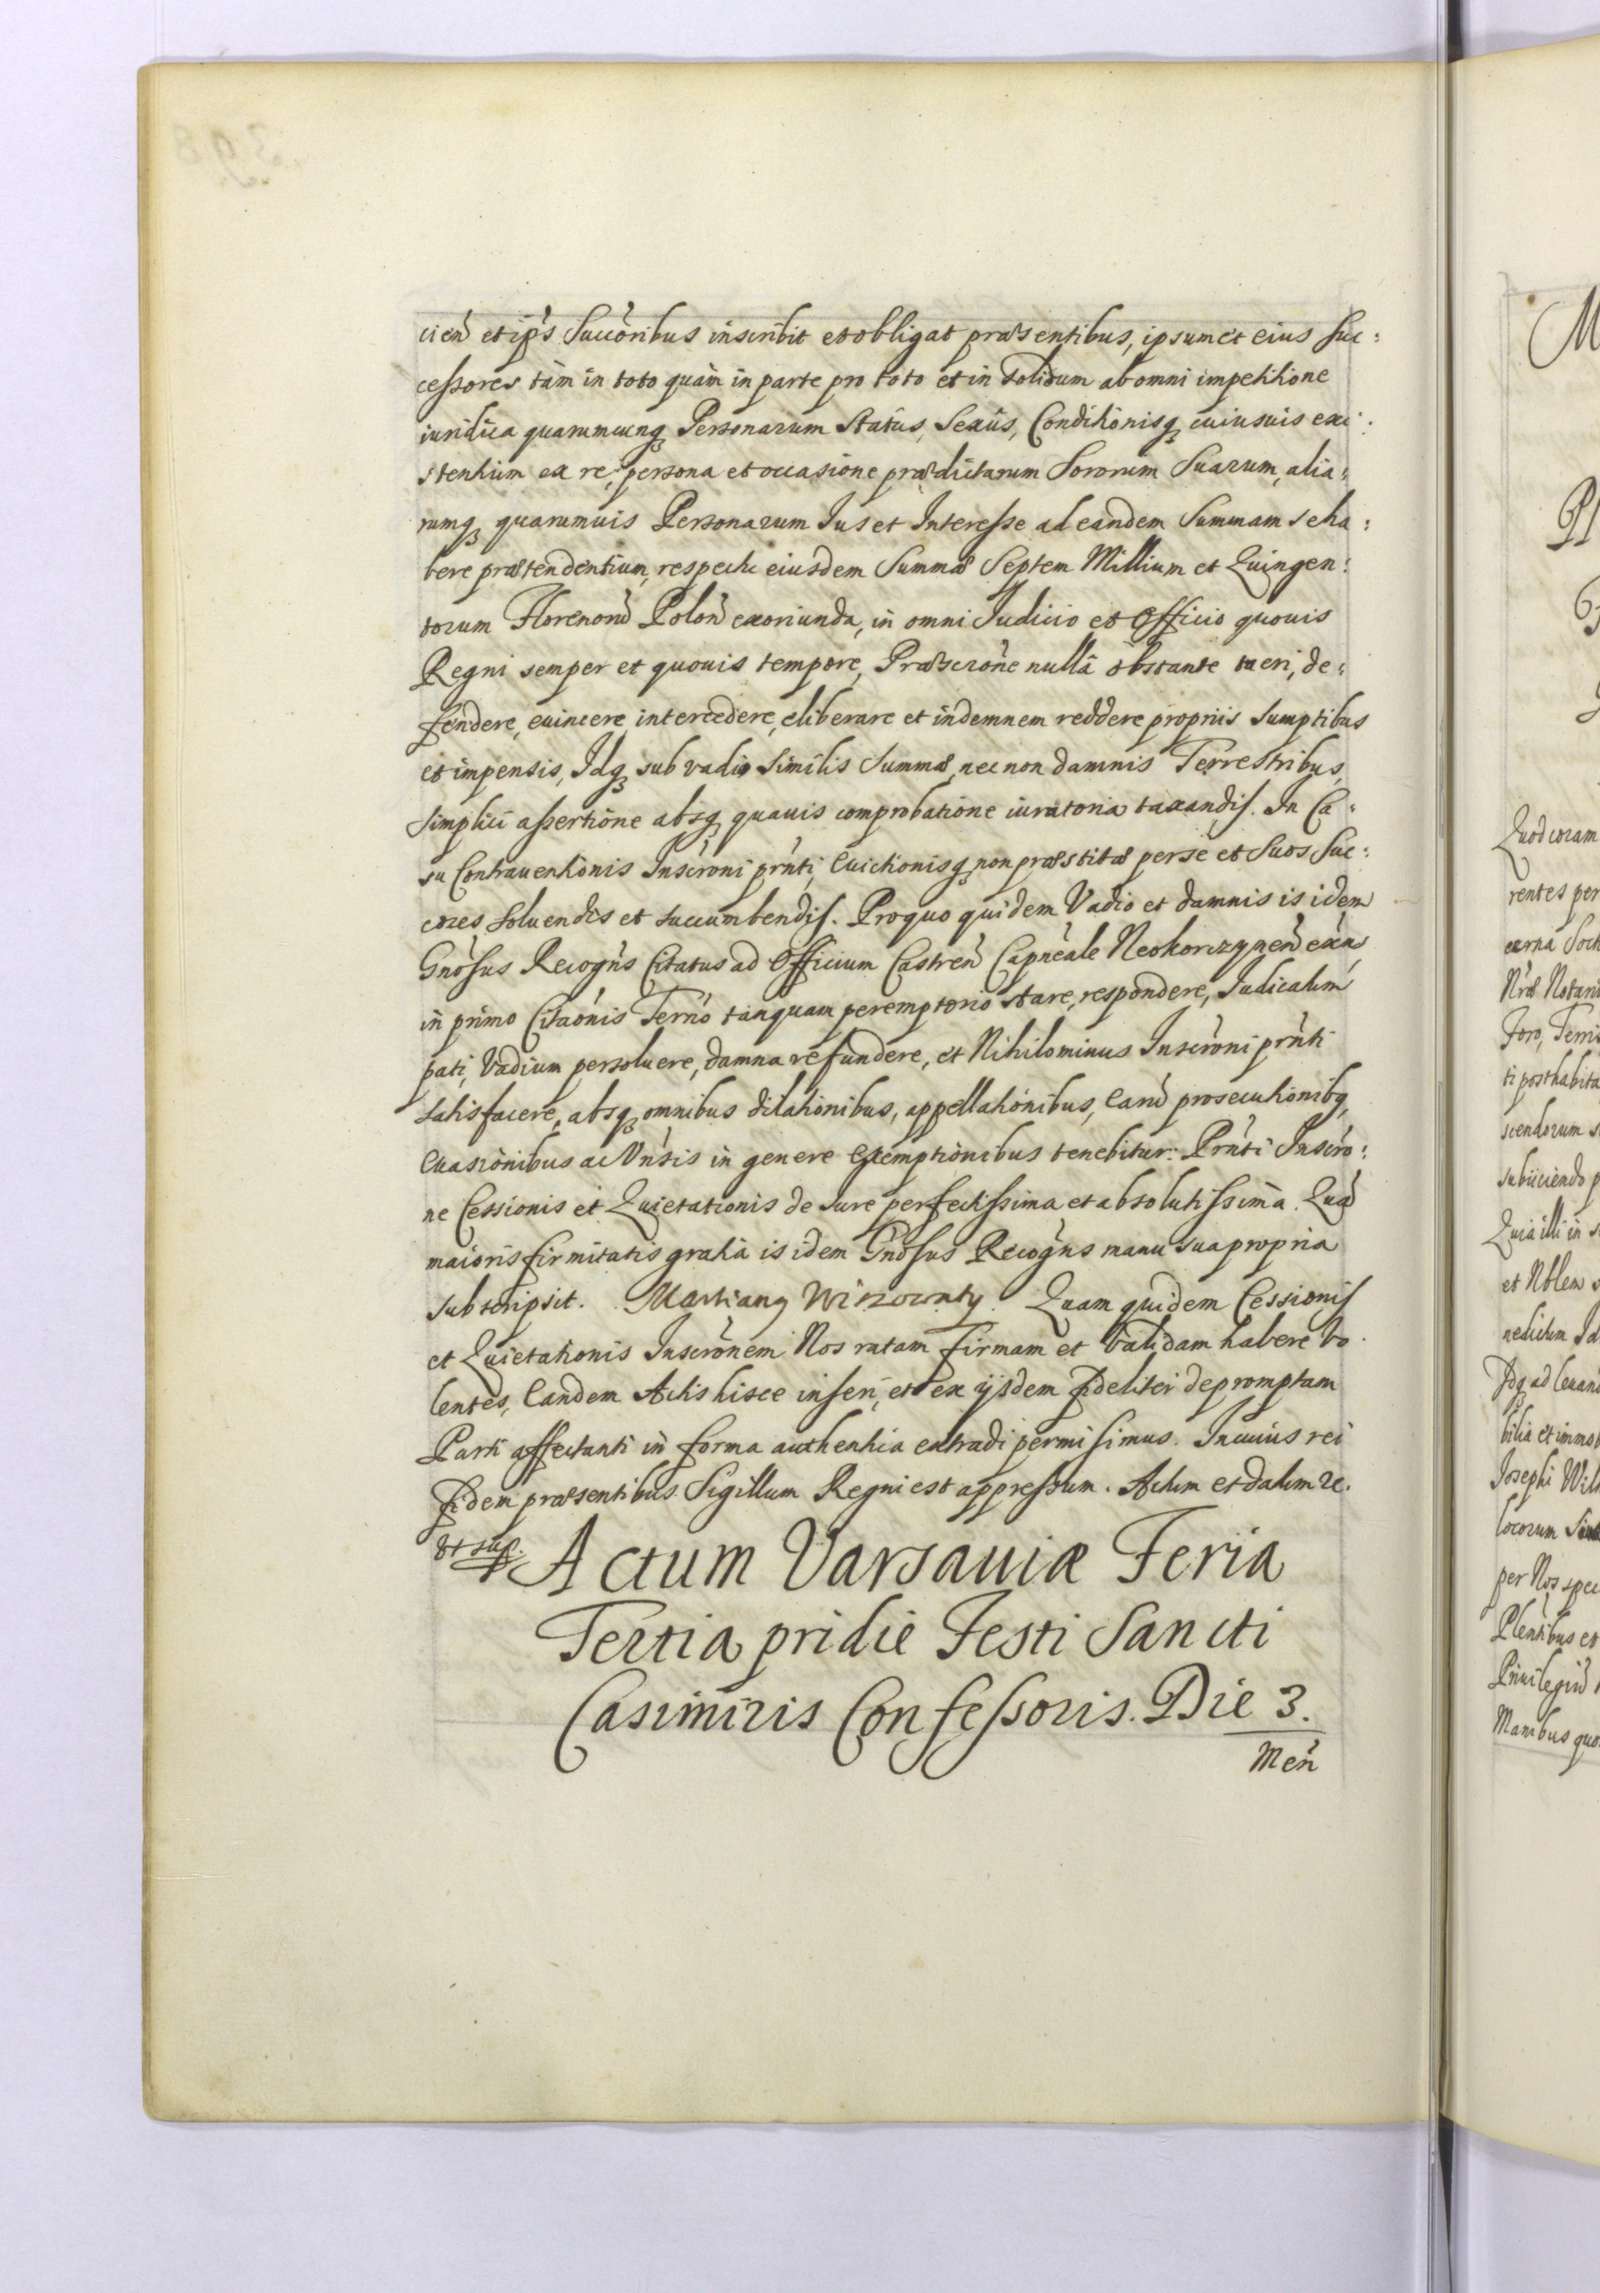 cień et ip̃s Succ̃oribus inscribit et obligat præsentibus, ipsum et eius Suc:
cessores tàm in toto quàm in parte pro toto et in solidum ab omni impetitione
iuridica quarumcunq Personarum Status, Sexûs, Conditionisq cuiusuis exi:
stentium ex re, persona et occasione prædictarum Sororum Suarum, alia:
rumq quarumuis Personarum Ius et Interesse ad eandem Summam se ha:
bere prætendentium, respectu eiusdem Summæ Septem Millium et Quingen:
torum Florenorũ Polon̄ exoriunda, in omni Iudicio et Officio quouis
Regni semper et quouis tempore, Præscrõne nullâ obstante tueri, de:
fendere, euincere, intercedere, eliberare et indemnem reddere propriis sumptibus
et impensis, Idq sub vadio similis Summæ, nec non damnis Terrestribus,
simplici assertione absq quauis comprobatione iuratoria taxandis. In Ca:
su Contrauentionis Inscrõni pr̃nti, Euictionisq non præstitæ per se et Suos Suc:
cores soluendis et succumbendis. Pro quo quidem Vadio et damnis is idem
Gñosus Recogñs Citatus ad Officium Castreñ Capñeale Neokorczyneñ
in primo Citaõnis Terño tanquam peremptorio stare, respondere, Iudicatum
pati, Vadium persoluere, damna refundere, et Nihilominus Inscrõni pr̃nti
satisfacere, absq omnibus dilationibus, appellationibus, earũ prosecutionibq,
Euasionibus ac Vñsis in genere exemptionibus tenebitur: Pr̃nti Inscrõ:
ne Cessionis et Quietationis de iure perfectissima et absolutissima. Quã
maioris firmitatis gratia is idem Gñosus Recogñs manu sua propria
subscripsit. Quam quidem Cessionis
et Quietationis Inscrõnem Nos ratam firmam et validam habere vo
lentes, Eandem Actis hisce inseri, et ex ijsdem fideliter depromptam
Parti affectanti in forma authentica extradi permisimus. In cuius rei
fidem præsentibus Sigillum Regni est appressum. Actum et datum ꝛc.
ut sup.
Actum Varsauiæ Feria
Tertia pridie Festi Sancti
Casimiris Confessoris. Die 3.
Meñ